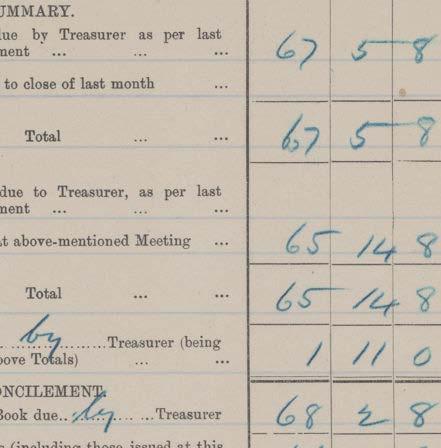 UMMARY.
lue by Treasurer as per last
ment ... ... ... 67 5 8
to close of last month ...
Total ... ... 67 5 8
due to Treasurer, as per last
ment ... ... ...
at above-mentioned Meeting ... 65 14 8
Total ... ... 65 14 8
by Treasurer (being
bove Totals) ... ... 1 11 0
ONCILEMENT.
Book due by Treasurer 68 2 8
s (including those issued at this